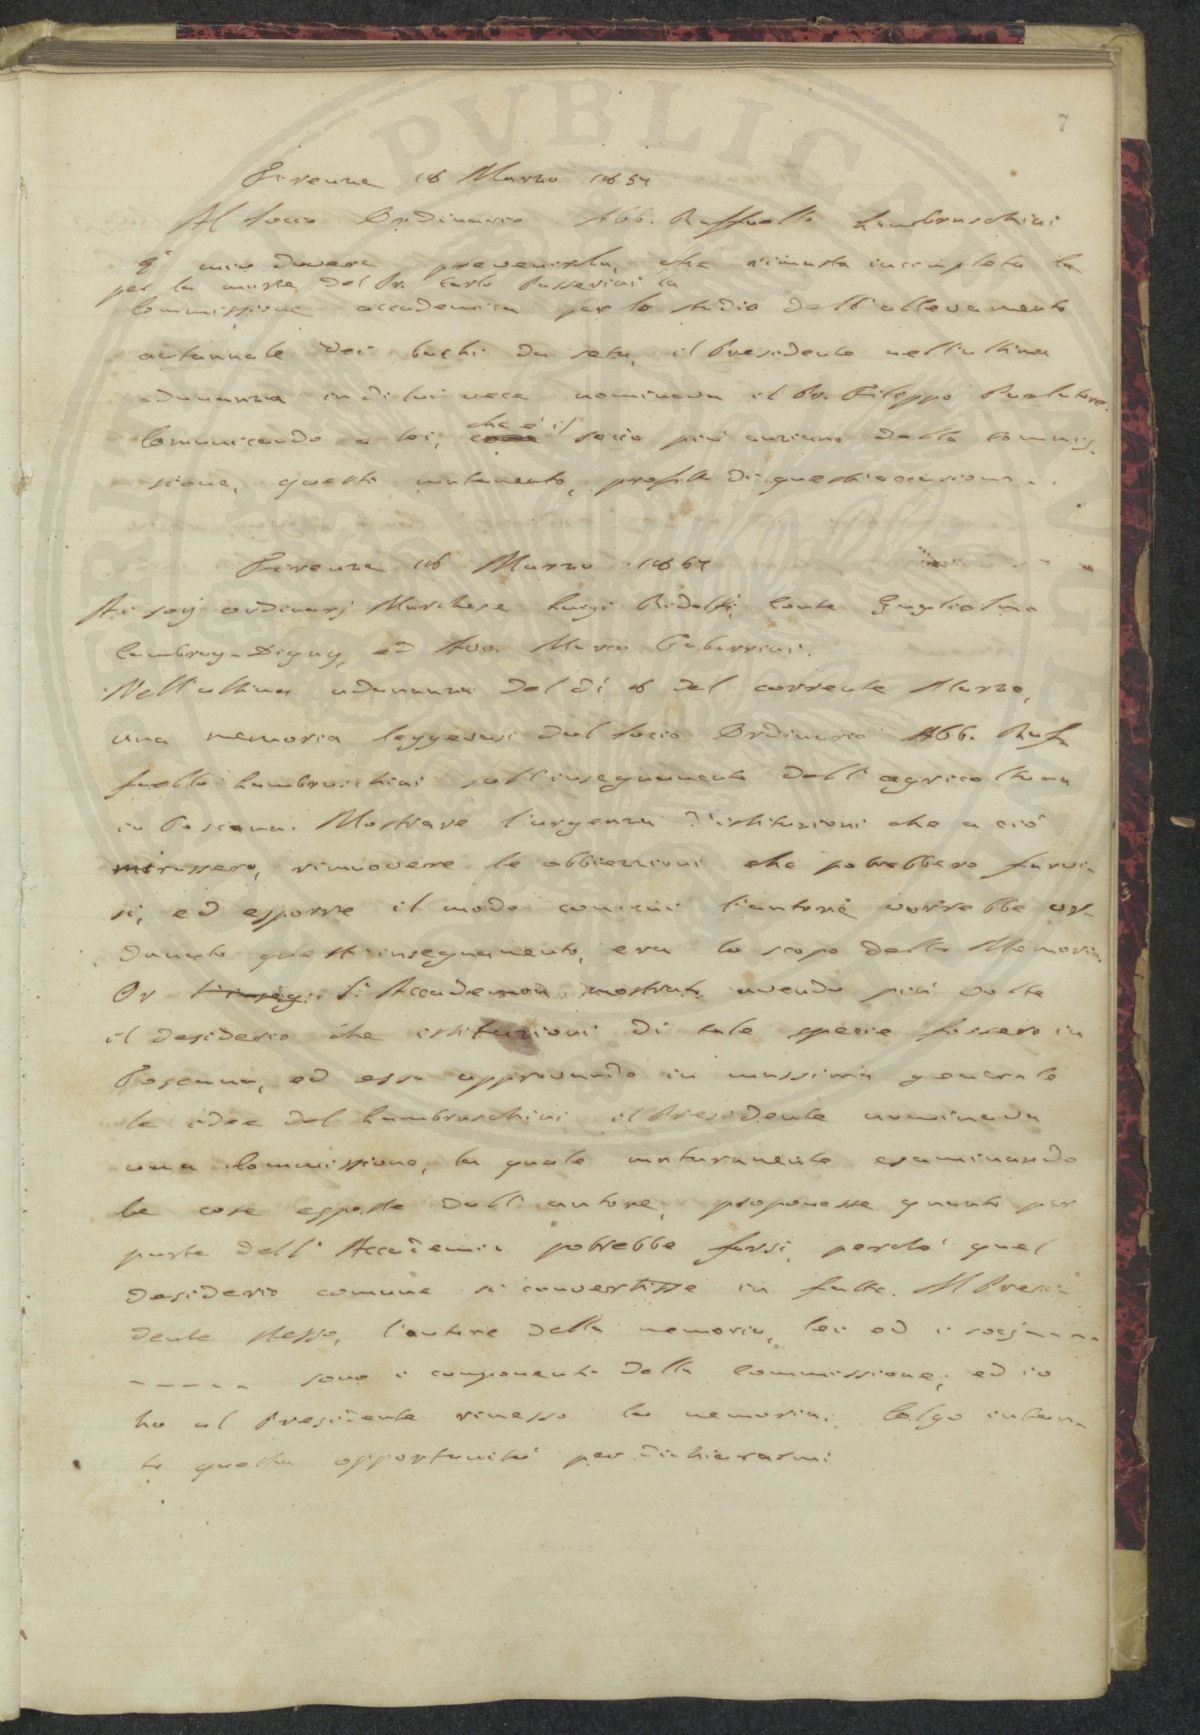 7
Firenze 18 Marzo 1857
Al Socio Ordinario Abb. Raffaello Lambruschini
È mio dovere prevenirla, che rimasta incompleta la
per la morte del Pr. Carlo Passerini la
Commissione accademica per lo studio dell'allevamento
autunnale dei bachi da seta, il Presidente nell'ultima
adunanza in di lui vece nominava il Pr. Filippo Parlatore.
Comunicando a lei, che è il
socio più anziano della commis-
sione, questo mutamento, profitto di quest'occasione...
Firenze 18 Marzo 1857
Ai socj ordinarj Marchese Luigi Ridolfi, Conte Guglielmo
Cambray-Digny, ed Avv. Marco Tabarrini.
Nell'ultima adunanza del dì 8 del corrente Marzo,
una memoria leggevasi dal socio Ordinario Abb. Raf-
faello Lambruschini sull'insegnamento dell'agricoltura
in Toscana. Mostrare l'urgenza d'istituzioni che a ciò
mirassero, rimuovere le obbiezioni che potrebbero farvi-
si, ed esporre il modo con cui l'autore vorrebbe or-
dinato quest'insegnamento, era lo scopo della Memoria.
Or l'Accademia mostrato avendo più volte
il desiderio che istituzioni di tale specie fossero in
Toscana, ed essa approvando in massima generale
le idee del Lambruschini il Presidente nominava
una Commissione, la quale maturamente esaminando
le cose esposte dall'autore, proponesse quanto per
parte dell'Accademia potrebbe farsi, perchè quel
desiderio comune si convertisse in fatto. Il Presi-
dente stesso, l'autore della memoria, lei ed i socj - - - -
- - - - - sono i componenti della Commissione; ed io
ho al Presidente rimesso la memoria. Colgo intan-
to questa opportunità per dichiararmi